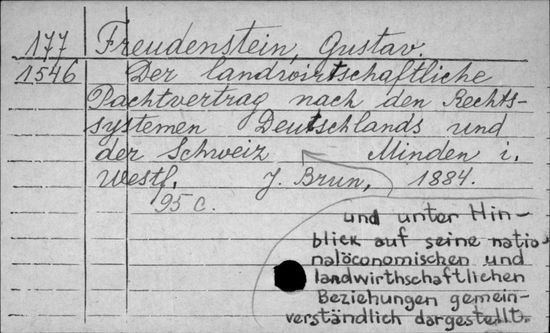 177 Freudenstein, Gustav.
1546 Der landwirtschaftliche
Pachtvertrag nach den Rechts-
systemen Deutschlands und
der Schweiz Minden i.
Westf. J. Brun, 1884.
95 c.
und unter Hin-
blick auf seine natio-
nalöconomischen und
landwirthschaftlichen
Beziehungen gemein-
verständlich dargestellt.